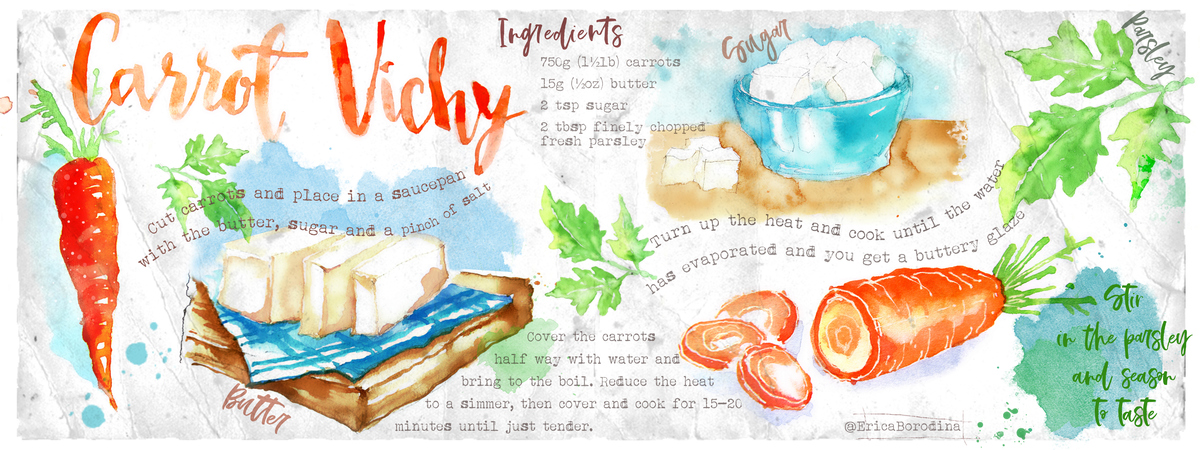 Carrot Vichy
Ingredients
750g (1½lb) carrots
15g (½oz) butter
2 tsp sugar
2 tbsp finely chopped
fresh parsley
Sugar
Parsley
Cut carrots and place in a saucepan
with the butter, sugar and a pinch of salt
Butter
Cover the carrots
half way with water and
bring to the boil. Reduce the heat
to a simmer, then cover and cook for 15-20
minutes until just tender.
Turn up the heat and cook until the water
has evaporated and you get a buttery glaze
Stir
in the parsley
and season
to taste
@EricaBorodina